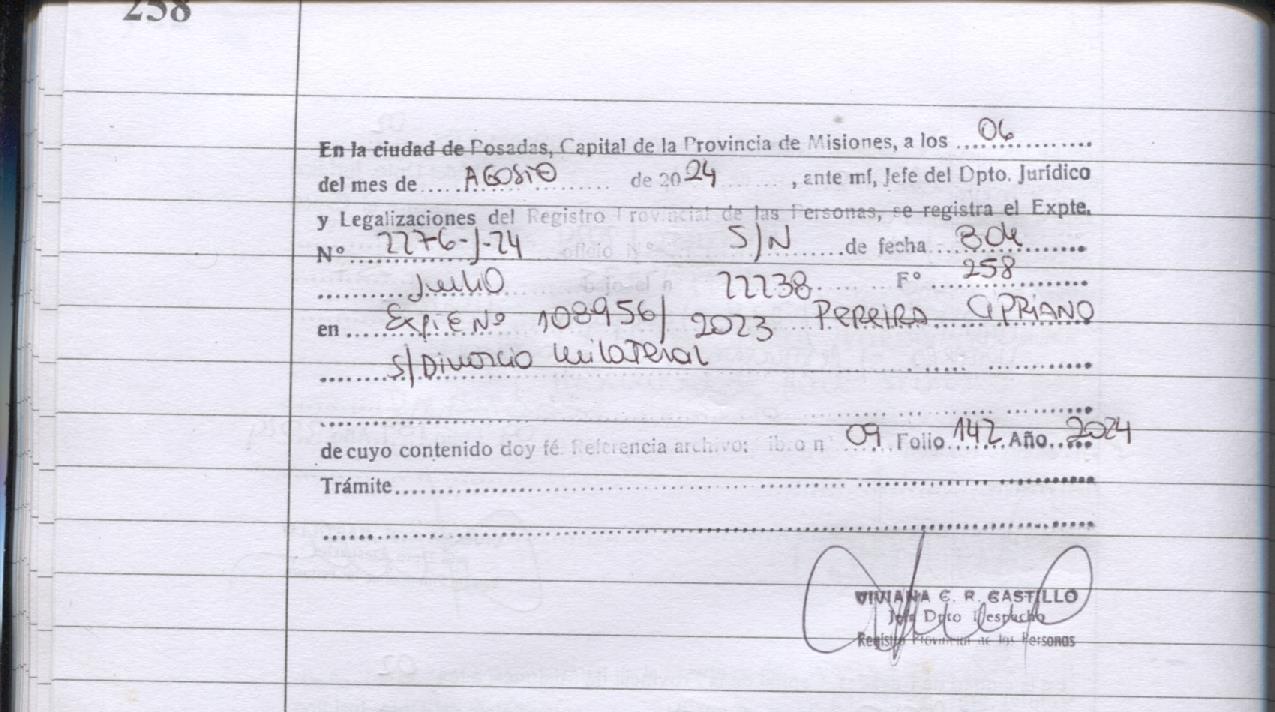 258
En la ciudad de Posadas, Capital de la Provincia de Misiones, a los 06
del mes de AGOSTO de 2024, ante mí, Jefe del Dpto. Jurídico
y Legalizaciones del Registro Provincial de las Personas, se registra el Expte.
Nº 2276-J-24 oficio Nº S/N de fecha 30 de
Julio 22238 Fº 258
en Expte Nº 108956/2023 PEREIRA CIPRIANO
S/Divorcio Unilateral
de cuyo contenido doy fé. Referencia archivo: Libro n 09 Folio 142 Año 2024
Trámite
VIVIANA C. R. CASTILLO
Jefe Dpto Despacho
Registro Provincial de las Personas